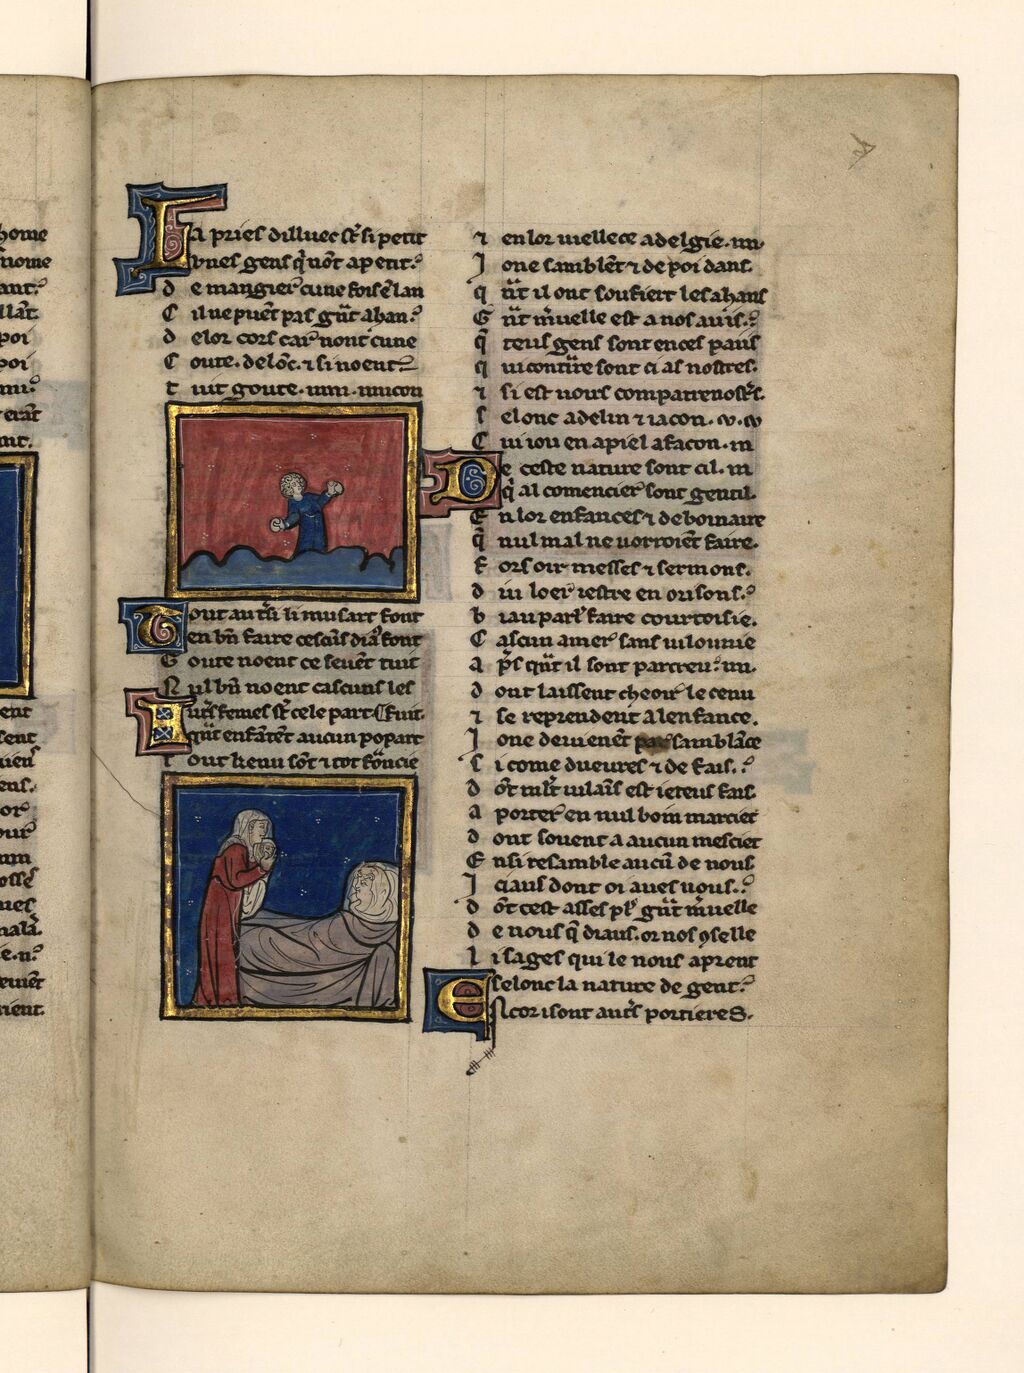 La pries dilluec st̄ si petit
vnes gens q̄ nōt apetit.
de mangier cune fois ēlan
Cil ne puēt pas gñt ahan.
delor cors car nont cune
Coute. de lōc. ⁊ si noent
tuit goute. iiii. mucon
Tout autsi li musart font
en bñ faire cescūs dia font
Goute noent ce seuēt tuit
Nul bñ no ent cascuns les
Iurs femes st̄ cele part fuit.
qñt enfātēt aucun popart
tout kenu sōt ⁊ tot frōcie
⁊ enlor viellece adelgie. iiii.
Jone samblēt ⁊ de poi dans.
qñt il ont soufiert les ahans
Gñt mͬuelle est a nos auis.
q̄ teus gens sont en ces pais
qui contͬire sont ci as nostres.
⁊ si est nous comparrenostͬs.
selonc adelin ⁊ iacon.
Cui iou en apiel a facon.
De ceste nature sont cil.
q̄ al comencier sont gentil.
En lor enfances ⁊ deboinaire
q̄ nul mal ne uorroiēt faire.
Fors oir messes ⁊ sermons.
diu loer iestre en orisons.
biau parlͬ faire courtoisie.
Cascun amer sans uilounie
ap̄s qñt il sont parcreu.
dont laissent cheoir le cenu
⁊ se reprendent a lenfance.
Jone deuienēt par samblāce
si come dueures ⁊ de fais.
dōt mlt̄ uilaīs est iteus fais
aporter en nul boin marciet
dont souent a aucun mesciet
Ensi resamble aucū de nous
Jciaus dont oi aues uous.
dōt cest asses plͬ gñt mͬuelle
de nous q̄ diaus. or nos ꝯselle
li sages qui le nous aprent
Eselonc la nature de gent.
Ncor isont autͬs portieres.